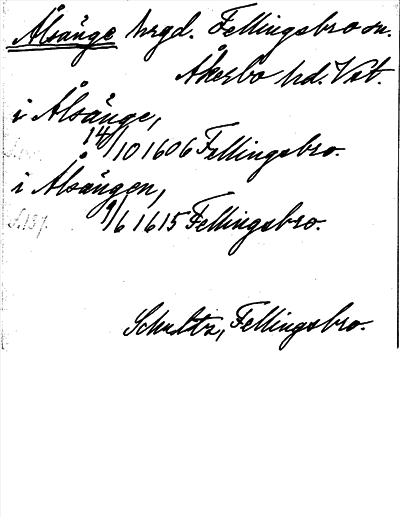 Ålsänge hrgd. Fellingsbro sn.
Åkerbo hd. Vstm.
i Ålsänge,
14/10 1606 Fellingsbro.
i Ålsängen,
s. 137. 9/6 1615 Fellingsbro.
Schultz, Fellingsbro.